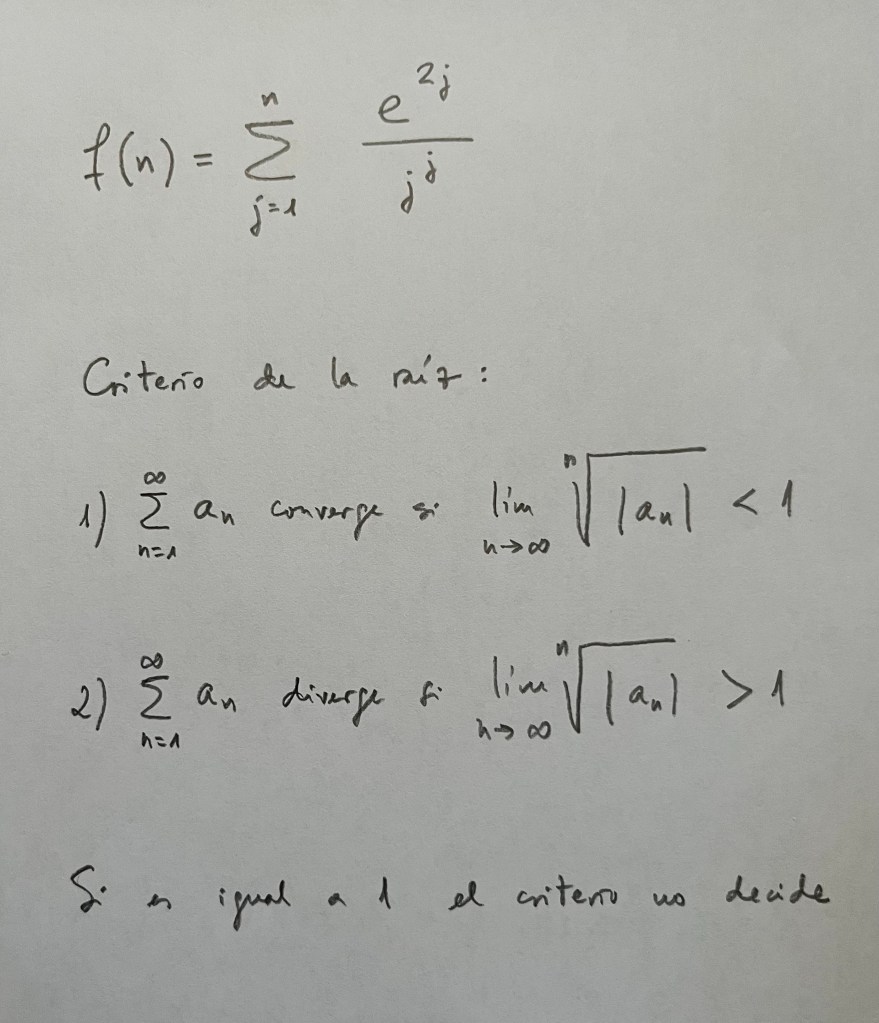 f(n) = \sum_{j=1}^{n} \frac{e^{2j}}{j^j}
Criterio de la raíz:
1) \sum_{n=1}^{\infty} a_n converge si \lim_{n→∞} \sqrt[n]{|a_n|} < 1
2) \sum_{n=1}^{\infty} a_n diverge si \lim_{n→∞} \sqrt[n]{|a_n|} > 1
Si es igual a 1 el criterio no decide